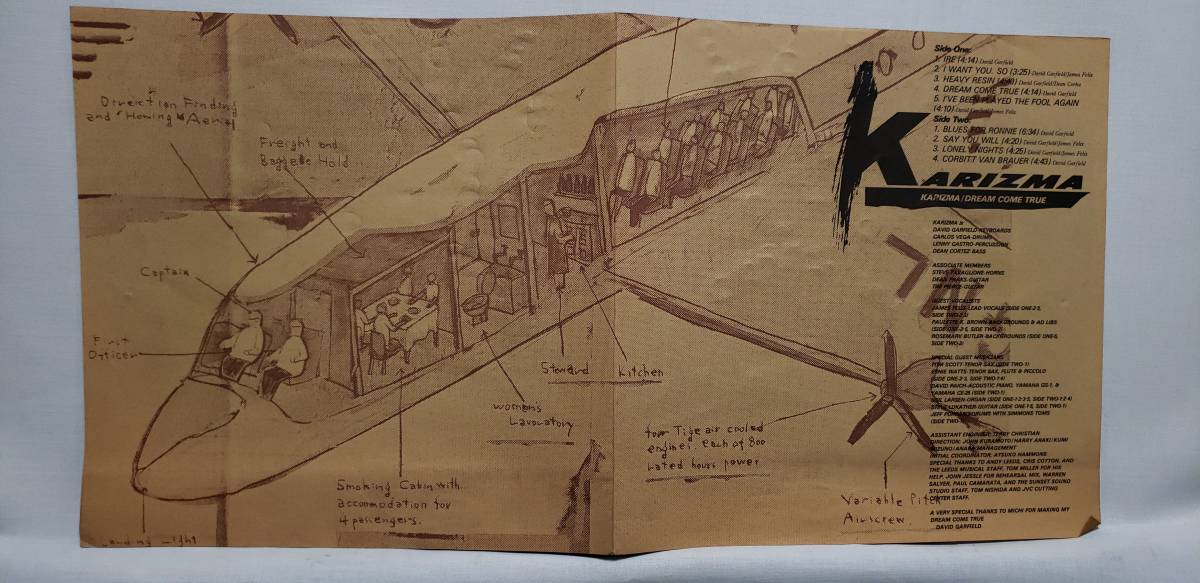 Direction Finding
and "Homing" Aerial
Freight and
Baggage Hold
Captain
First
Officer
Landing Light
Smoking Cabin with
accommodation for
4 passengers.
Women's
Lavoratory
Steward
Kitchen
four Tige air cooled
engines. each of 800
rated hours power
Variable Pitch
Airscrew
Side One:
1. IRE (4:14) David Garfield
2. I WANT YOU. SO (3:25) David Garfield/James Felix
3. HEAVY RESIN David Garfield/Dean Cortez
4. DREAM COME TRUE (4:14) David Garfield
5. I'VE BEEN PLAYED THE FOOL AGAIN
(4:10) David Garfield/James Felix
Side Two:
1. BLUES FOR RONNIE (6:34) David Garfield
2. SAY YOU WILL (4:20) David Garfield/James Felix
3. LONELY NIGHTS (4:25) David Garfield/James Felix
4. CORBITT VAN BRAUER (4:43) David Garfield
KARIZMA
KARIZMA/DREAM COME TRUE
KARIZMA is
DAVID GARFIELD-KEYBOARDS
CARLOS VEGA-DRUMS
LENNY CASTRO-PERCUSSION
DEAN CORTEZ-BASS
ASSOCIATE MEMBERS
STEVE TAVAGLIONE-HORNS
DEAN PARKS-GUITAR
TIM PIERCE-GUITAR
GUEST VOCALISTS
JAMES FELIX-LEAD VOCALS (SIDE ONE-2·5,
SIDE TWO-2·3)
PAULETTE K. BROWN-BACKGROUNDS & AD LIBS
(SIDE ONE-2·5, SIDE TWO-2)
ROSEMARY BUTLER-BACKGROUNDS (SIDE ONE-5,
SIDE TWO-2)
SPECIAL GUEST MUSICIANS
TOM SCOTT-TENOR SAX (SIDE TWO-1)
ERNIE WATTS-TENOR SAX, FLUTE & PICCOLO
(SIDE ONE-2·3, SIDE TWO-1·4)
DAVID PAICH-ACOUSTIC PIANO, YAMAHA GS-1, &
YAMAHA CE-25 (SIDE TWO-1)
NEIL LARSEN-ORGAN (SIDE ONE-1·2·3·5, SIDE TWO-1·2·4)
STEVE LUKATHER-GUITAR (SIDE ONE-1·5, SIDE TWO-1)
JEFF PORCARO-DRUMS WITH SIMMONS TOMS
(SIDE TWO-1)
ASSISTANT ENGINEER: TERRY CHRISTIAN
DIRECTION: JOHN KURAMOTO/HARRY ARAKI/KUMI
MIZUNO/ANABA MANAGEMENT
INITIAL COORDINATOR: ATSUKO HAMMONS
SPECIAL THANKS TO ANDY LEEDS, CRIS COTTON, AND
THE LEEDS MUSICAL STAFF, TOM MILLER FOR HIS
HELP, JOHN JESSLE FOR REHEARSAL MIX, WARREN
SALYER, PAUL CAMARATA, AND THE SUNSET SOUND
STUDIO STAFF, TOM NISHIDA AND JVC CUTTING
CENTER STAFF.
A VERY SPECIAL THANKS TO MICHI FOR MAKING MY
DREAM COME TRUE
DAVID GARFIELD